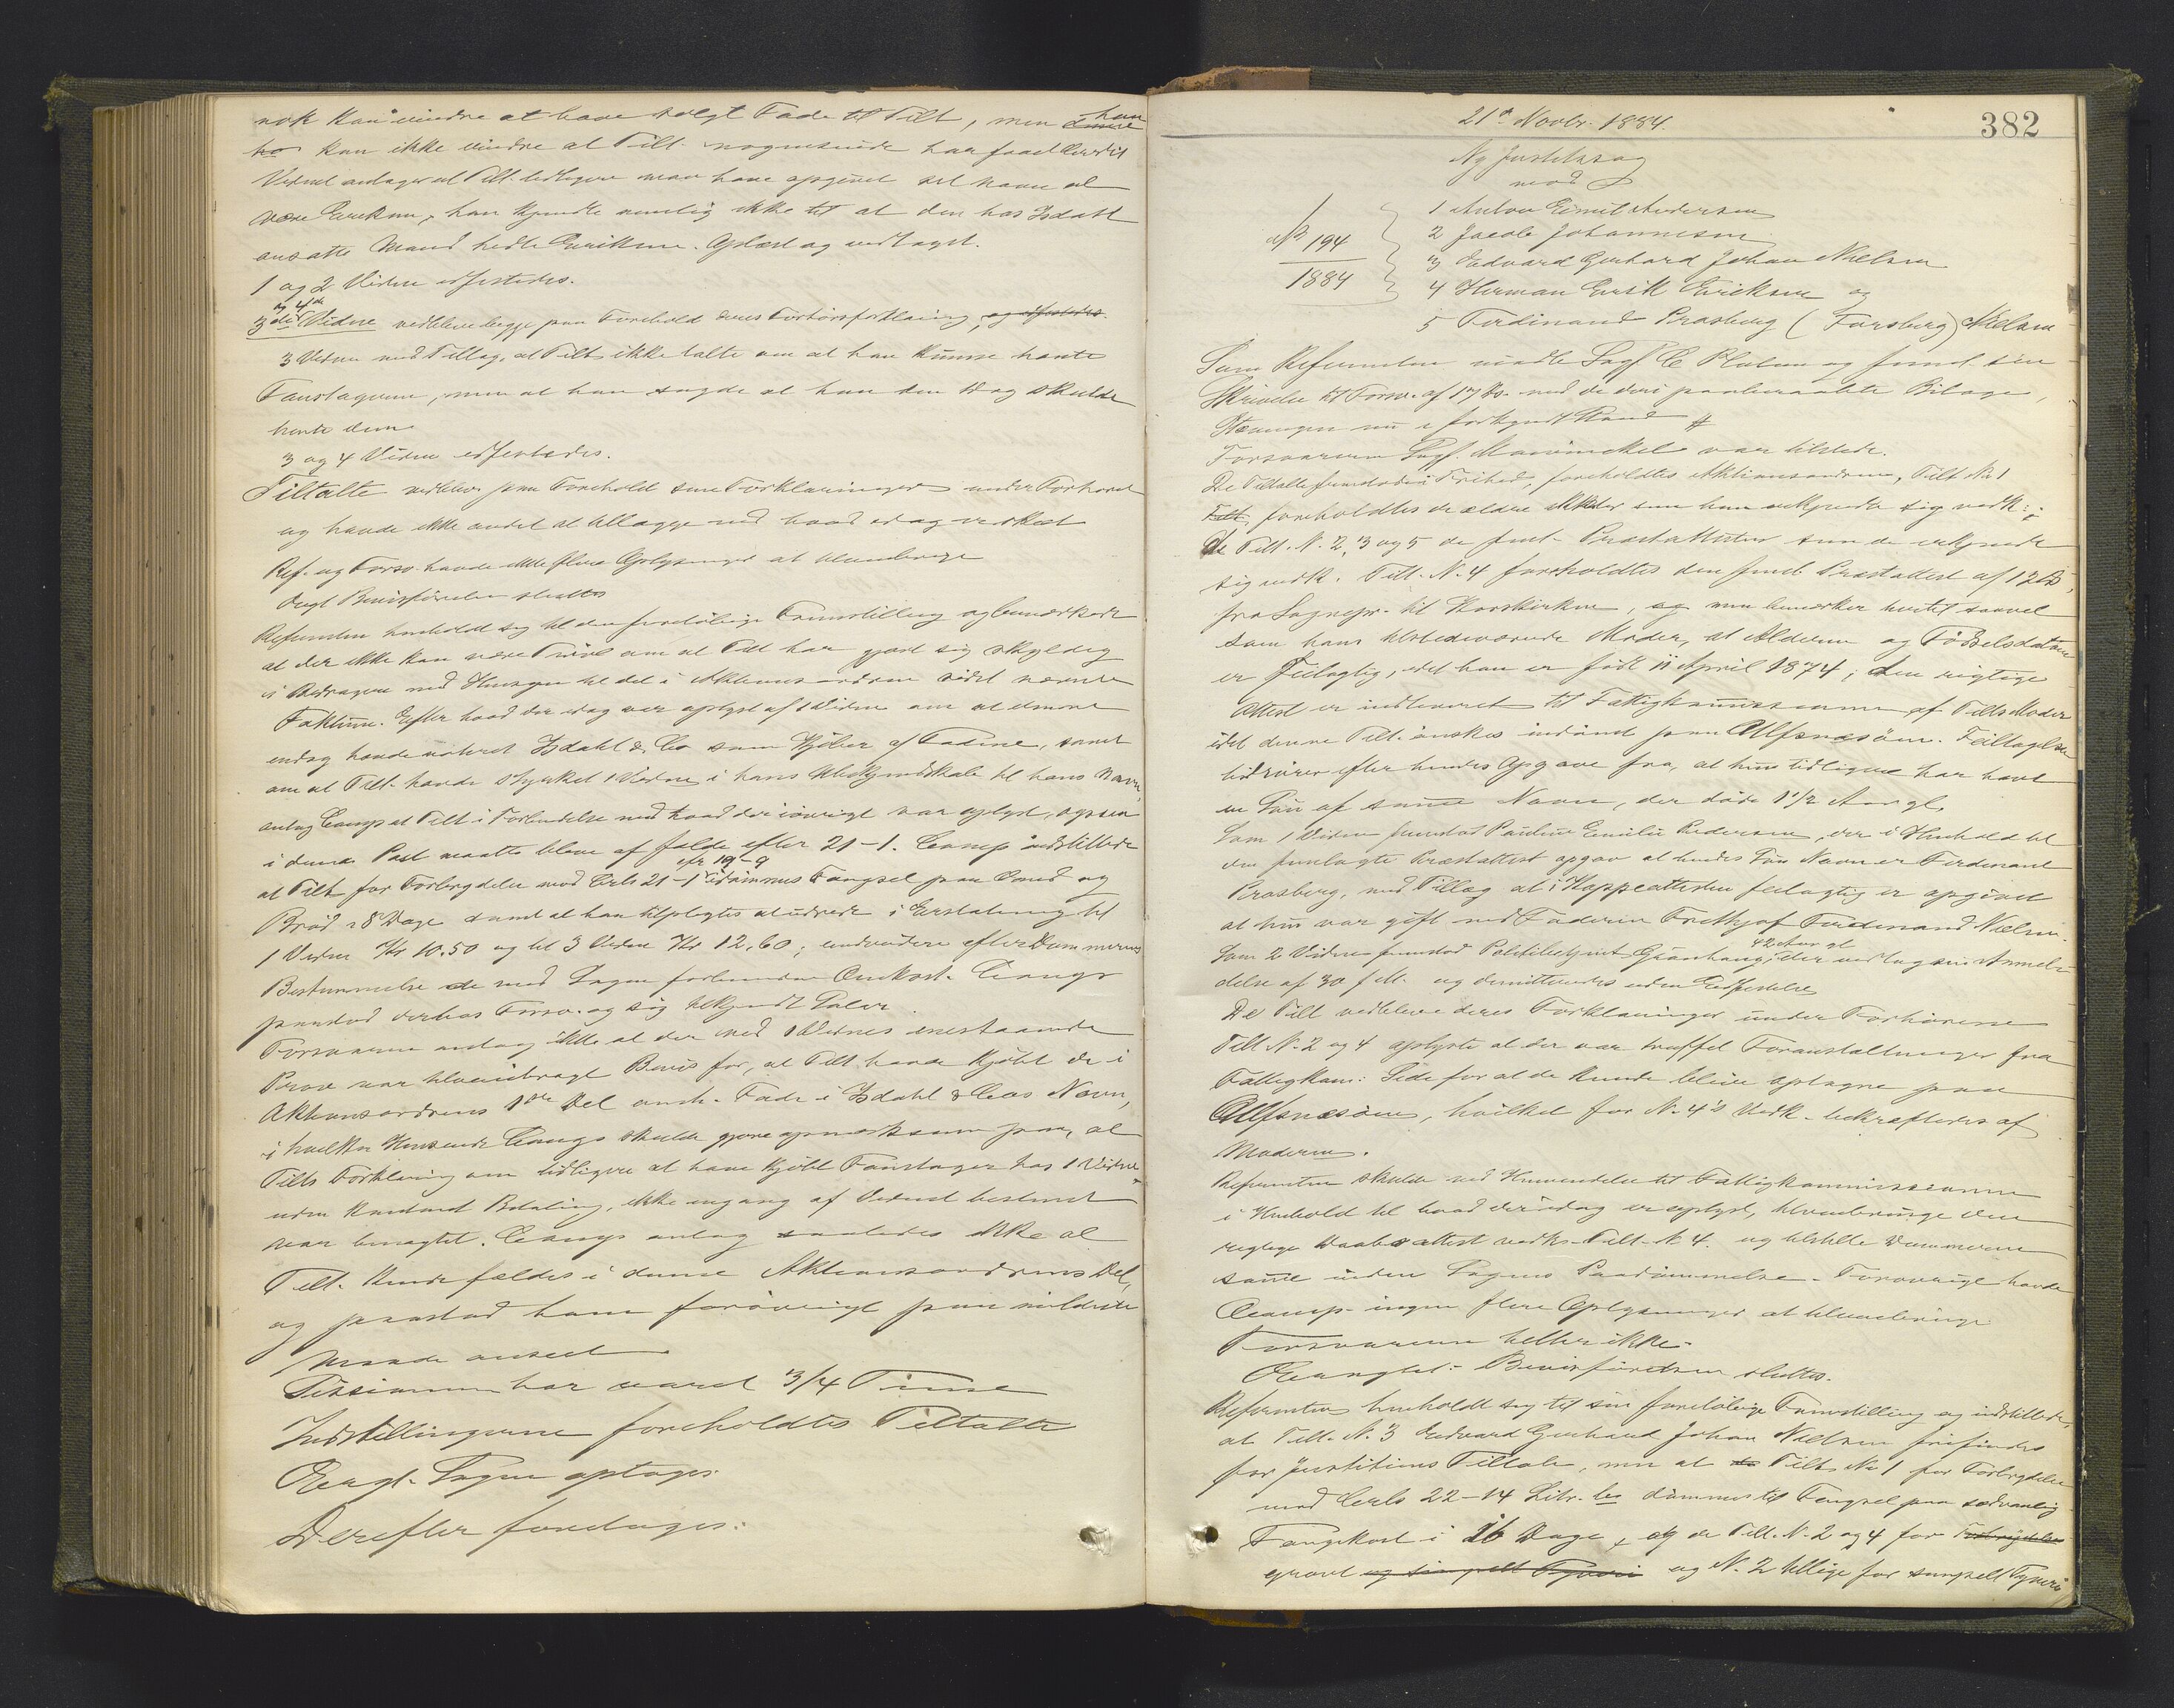 nok kan mindre at have solgt Fade til Tilt, men han
kan ikke mindre at Tilt. nogensinde har faaet Credit
Vidnet antager at Tilt. tidligere maa have opgivet sit Navn at
være Eriksen, han kjendte nemlig ikke til at den hos Isdahl
ansatte Mand hedte Eriksen. Oplæst og vedtaget.
1 og 2 Vidne edfæstedes.
og 4de
3die Vidne vedbleve begge paa Forehold deres Forhørsforklaring, og edfæstedes.
3 Vidne med Tillæg, at Tilt ikke talte om at han kunne hente
Fanstagerne, men at han sagde at han den Dag skulde
hente dem
3 og 4 Vidne edfæstedes.
Tiltalte vedblev paa Forehold sine Forklaringer under Forhøret
og havde ikke andet at tillægge ved hvad idag er skeet
Ref. og Forsv. havde ikke flere Oplysninger at tilveiebringe
Bevisførelsen sluttes
Referenten henholdt sig til den foreløbige Fremstilling og bemærkede
at der ikke kan være Tvivl om at Tilt har gjort sig skyldig
i Bedrageri med Hensyn til det i Aktionsordren sidst nævnte
Faktum. Efter hvad der idag var oplyst af 1 Vidne om at denne
endog havde noteret Isdahl & Co som Kjøber af Fadene, samt
om at Tilt. havde styrket 1 Vidne i hans Ubekjendtskab til hans Navn,
antog Comp at Tilt i Forbindelse med hvad der iøvrigt var oplyst, ogsaa
i denne Post maatte blive at fælde efter 21-1. Comp indstillede
cfr 19-9
at Tilt for Forbrydelse mod Crls 21-1 idømmes Fængsel paa Vand og
Brød i 8 Dage samt at han tilpligtes at udrede i Erstatning til
1 Vidne Kr 10.50 og til 3 Vidne Kr 12,60; endvidere efter Dommerens
Bestemmelse de med Sagen forbundne Omkost.
paastod derhos Forsv. og sig tilkjendt Salær.
Forsvareren antog ikke at der ved 1 Vidnes enestaaende
Prov var tilveiebragt Bevis for, at Tilt havde kjøbt de i
Aktionsordrens 1ste Del omh. Fade i Isdahl & Cos Navn,
i hvilken Henseende Comp skulde gjøre opmærksom paa, at
Tilts Forklaring om tidligere at have kjøbt Fanstager hos 1 Vidne
uden kontant Betaling, ikke engang af Vidnet bestemt
var benægtet. Comp antog saaledes ikke at
Tilt. kunde fældes i denne Aktionsordrens Del,
og paastod ham forøvrigt paa mildeste
Maade anseet
har varet 3/4 Time
Indstillingerne foreholdtes Tiltalte
Sagen optages
Derefter foretages:
21de Novbr. 1884.
382
Ny Justitssag
mod
No 194
1884
1 Anton Emil Andersen
2 Jacob Johannesen
3 Edvard Gerhard Johan Nielsen
4 Herman Erik Eriksen og
5 Ferdinand Prasberg (Forsberg) Nielsen
Som Referenten mødte Sagf. C. og freml. sin
Skrivelse til Forsv. af 17 ds. med de deri paaberaabte Bilage,
Stævningen nu i forkyndt Stand
Forsvareren Sagf. Mowinckel var tilstede.
De Tiltalte fremstode i Frihed, foreholdtes Aktionsordren, Tilt No 1
Tilt. foreholdtes de ældre Akter som han erkjendte sig vedk.;
de Tilt. N. 2, 3 og 5 de freml. Præstattester som de erkjendte
sig vedk. Tilt. N. 4 foreholdtes den freml. Præstattest af 12 ds,
fra Sognepr. til Korskirken, men bemærker hertil saavel
som hans tilstedeværende Moder, at Alderen og Fødselsdatum
er feilagtig, idet han er født 11 April 1874; den rigtige
Attest er indleveret til Fattigkommissionen af Tilts Moder
idet denne Tilt. ønskes indsendt paa Ulfsnæsøen. Feiltagelsen
hidrører efter hendes Opgave fra, at hun tidligere har havt
en Søn af samme Navn, der døde 1 1/2 Aar gl.
Som 1 Vidne fremstod Pauline Emilie Pedersen, der i Henhold til
den fremlagte Præstattest opgav at hendes Søns Navn er Ferdinand
Prasberg, med Tillæg at i Koppeattesten feilagtig er opgivet
at hun var gift med Faderen Frithjof Ferdinand Nielsen.
42 Aar gl
Som 2 Vidne fremstod Politibetjent Grønhaug, der vedtog sin Anmel-
delse af 30 f. M. og demitteredes uden Edfæstelse
De Tilt vedbleve deres Forklaringer under Forhørene
Tilt N. 2 og 4 oplyste at der var truffet Foranstaltninger fra
Fattigkom: Side for at de kunde blive optagne paa
Ulfsnæsøen, hvilket for N. 4's Vedk. bekræftedes af
Moderen.
Referenten skulde ved Henvendelse til Fattigkommissionen
i Henhold til hvad der idag er oplyst, tilveiebringe den
rigtige Daabsattest vedk. Tilt. N 4. og tilstille Dommeren
samme inden Sagens Paadømmelse. Forøvrigt havde
Comp. ingen flere Oplysninger at tilveiebringe
Forsvareren heller ikke.
Bevisførelsen sluttes.
Referenten henholdt sig til sin foreløbige Fremstilling og indstillede,
at Tilt. N. 3 Edvard Gerhard Johan Nielsen frifindes
for Justitiens Tiltale, men at Tilt No 1 for Forbrydelse
mod Crls 22-14 Litr. dømmes til Fængsel paa sædvanlig
Fangekost i 16 Dage, og de Tilt. N. 2 og 4 for Forbrydelse
grovt og simpelt Tyveri og N. 2 tillige for simpelt Tyveri